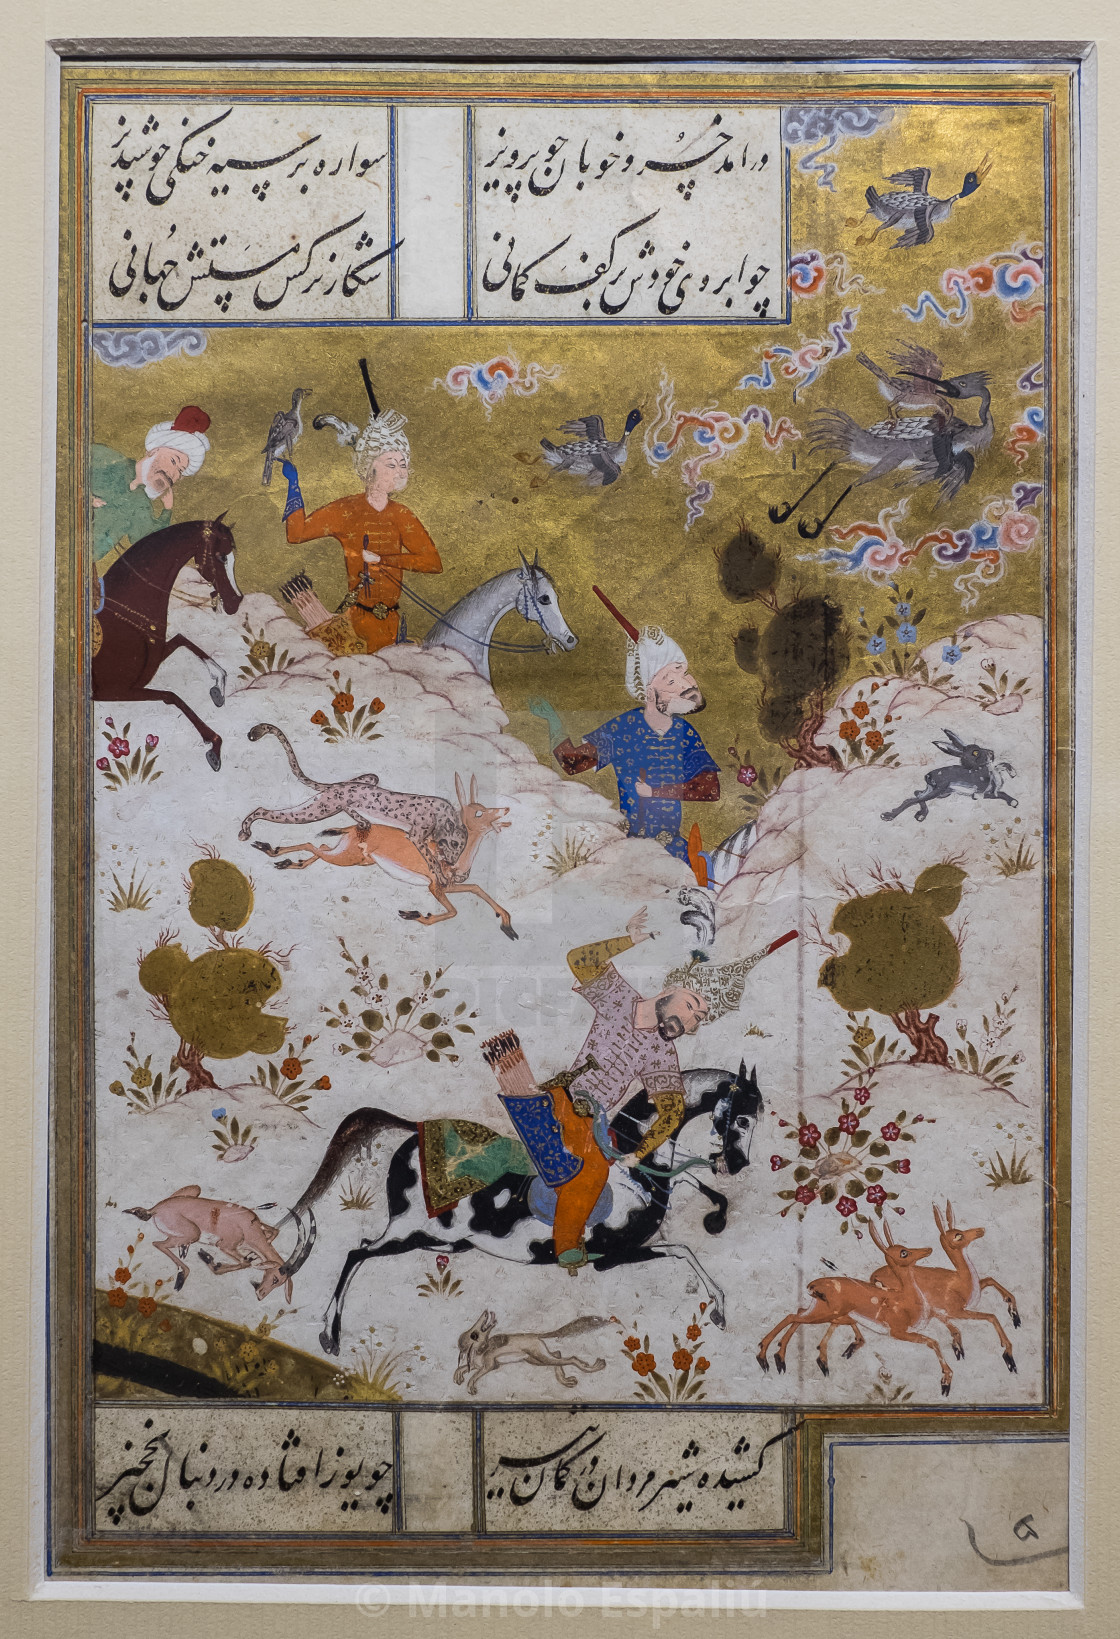 درامد خسرو خوبان چو پرویز
سواره بر سیه خنکی چو شبدیز
چو ابروی خودش بر کف کمانی
شکار نرکس مستش جهانی
کشیده شیر مردان در کمان تیر
چو یوز افتاده در دنبال نخجیر
© Manolo Espaliú